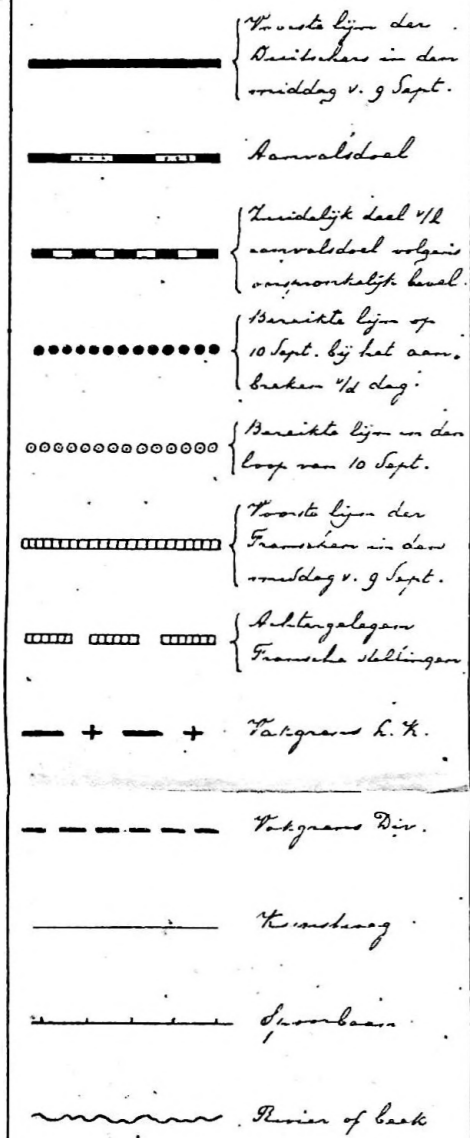 Voorste lijn der
Duitschers in den
middag v. 9 Sept.
Aanvalsdoel
Zuidelijk deel v/h
aanvalsdoel volgens
oorspronkelijk bevel.
Bereikte lijn op
10 Sept. bij het aan-
breken v/d dag.
Bereikte lijn in den
loop van 10 Sept.
Voorste lijn der
Franschen in den
middag v. 9 Sept.
Achtergelegen
Fransche stellingen
Vakgrens L. K.
Vakgrens Div.
Kunstweg
Spoorbaan
Rivier of beek